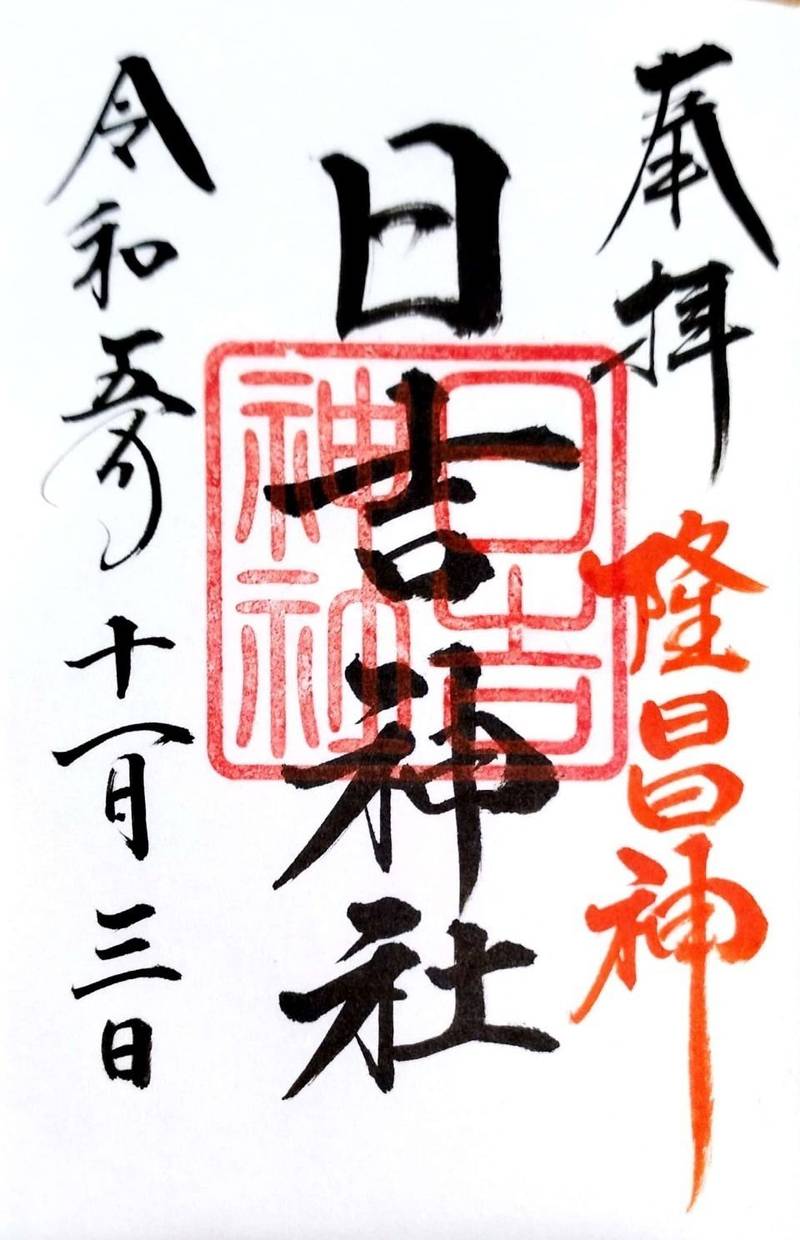 奉拝
隆昌神
日吉神社
日吉
神
令和五年十一月三日